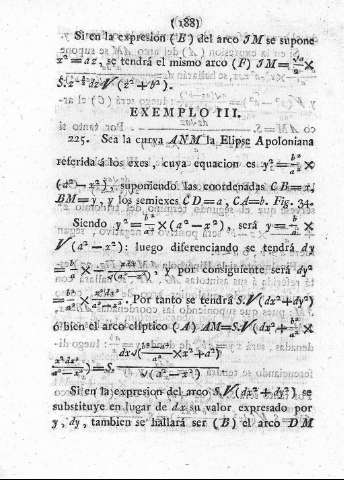 (188)
Si en la expresion (B) del arco IM se supone
x² = az, se tendrá el mismo arco (F) IM = √a/ ×
S.z⁻½ dz √(z² + b²).
EXEMPLO III.
225. Sea la curva ANM la Elipse Apoloniana
referida á los exes, cuya equacion es y² = b²/a² ×
(a² − x²), suponiendo las coordenadas CB = x,
BM = y, y los semiexes CD = a, CA = b. Fig. 34.
Siendo y² = b²/a² × (a² − x²), será y = b/a ×
√(a² − x²): luego diferenciando se tendrá dy
= b/a × − xdx/√(a² − x²), y por consiguiente será dy²
= b²/a² × x²dx²/a² − x². Por tanto se tendrá S.√(dx² + dy²)
ó bien el arco clíptico (A) AM = S.√(dx² + b²/a² ×
x²dx²/a² − x²) = S. dx√(b² − a²/a² × x² + a²)/√(a² − x²)
Si en la expresion del arco S.√(dx² + dy²) se
substituye en lugar de dx su valor expresado por
y, dy, tambien se hallará ser (B) el arco DM